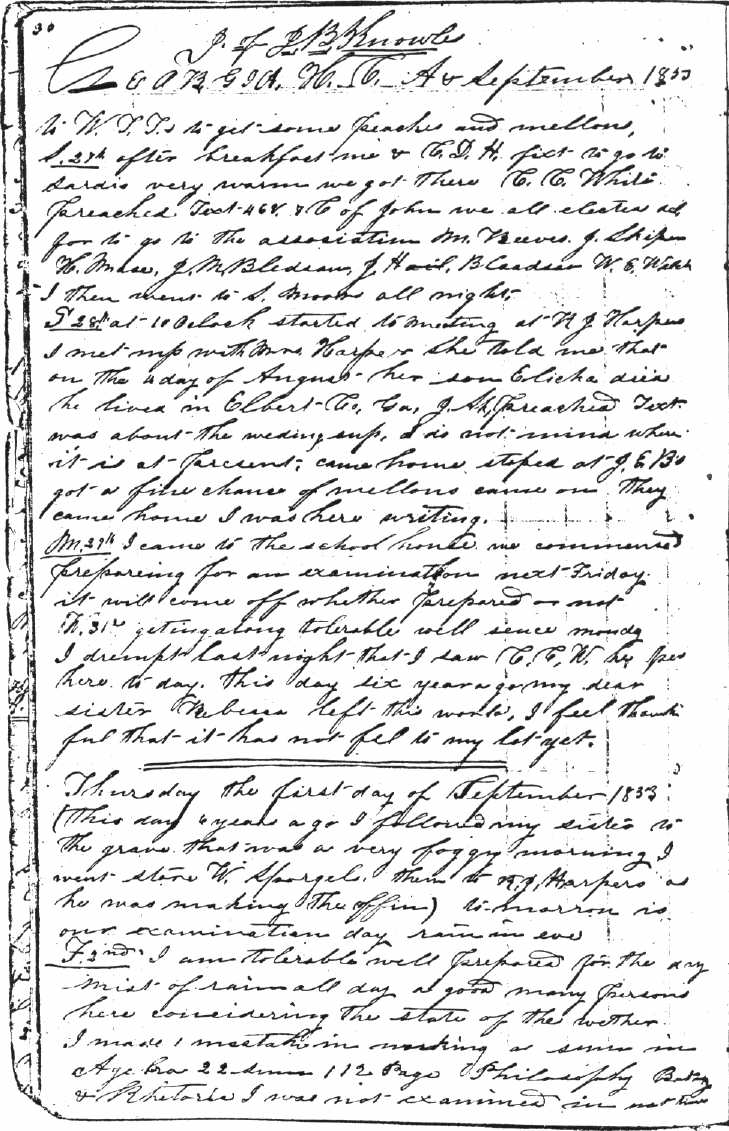 30
J. of J B Knowls
& A B G I A. H. C. A & September 1853
to W. T. T.s to get some peaches and mellons,
S. 27th after breakfast me & C. D. H. fixt to go to
Sardis very warm we got there C. C. White
preached Text 46 v 8 C of John we all elected del
for to go to the association M. Reeves. J. Skipe
H. Muse, J. M. Bledsaw, J Hail, B
I then went to S. Moors all night;
S 28th at 10 Oclock started to meeting at H J Harpers
I met up with Mrs. Harper she told me that
on the 4 day of August her son Elicka died
he lived in Elbert Co, Ga, J. Sk, preached Text
was about the weding sup, I do not mind where
it is at present; came home stoped at J. E. Bs
got a fine chance of mellons came on they
came home I was here writing.
M. 29th I came to the school house we commenced
prepareing for an examination next Friday.
it will come off whether prepared or not
31st geting along tolerable well sence monday
I drempt last night that I saw C. C. W. he
here to day. this day six years ago my dear
sister Rebecca left this world, I feel thank
ful that it has not fel to my lot yet.
Thursday the first day of September 1853
(This day 6 years ago I followed my sister to
the grave that was a very foggy morning I
went store W. Spurgels. then to H. J. Harpers as
he was making the coffin) to-morrow is
our examination day rain in eve
F. 2nd I am tolerable well prepared for the day
mist of rain all day a good many persons
here considering the state of the wether
I made 1 mistake in working a sum in
Algebra 22 sum 112 Page Philosophy Botny
& Rhetoric I was not examined in not time